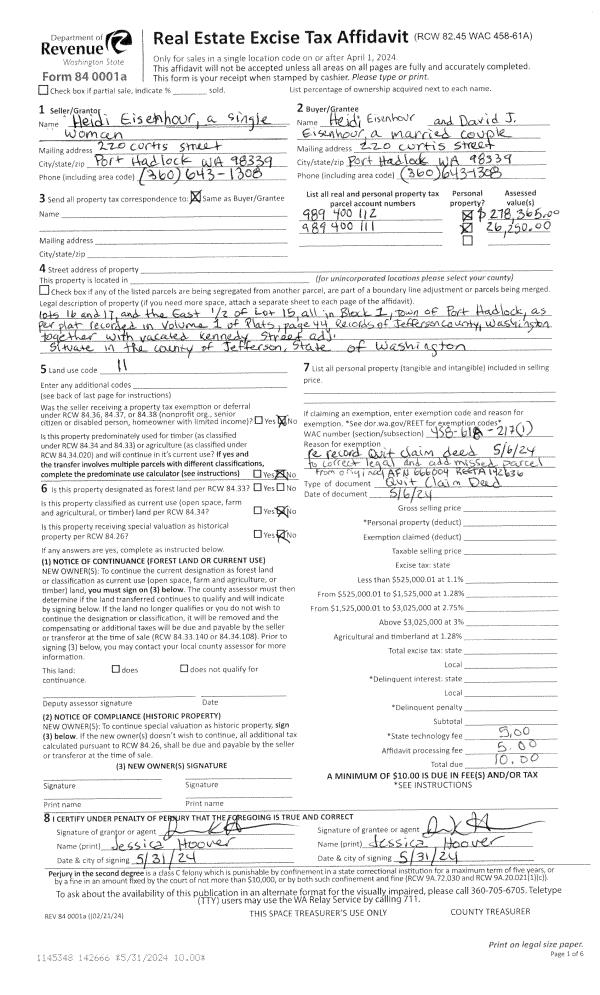 Department of
Revenue
Washington State
Form 84 0001a
Real Estate Excise Tax Affidavit (RCW 82.45 WAC 458-61A)
Only for sales in a single location code on or after April 1, 2024.
This affidavit will not be accepted unless all areas on all pages are fully and accurately completed.
This form is your receipt when stamped by cashier. Please type or print.
Check box if partial sale, indicate % ______ sold.
List percentage of ownership acquired next to each name.
1 Seller/Grantor
Name Heidi Eisenhour, a single
Woman
Mailing address 220 curtis street
City/state/zip Port Hadlock WA 98339
Phone (including area code) (360) 643-1308
2 Buyer/Grantee
Name Heidi Eisenhour and David J.
Eisenhour, a married couple
Mailing address 220 curtis street
City/state/zip Port Hadlock WA 98339
Phone (including area code) (360)643-1308
3 Send all property tax correspondence to: Same as Buyer/Grantee
Name
Mailing address
City/state/zip
List all real and personal property tax
parcel account numbers
Personal
property?
Assessed
value(s)
989 400 112 $ 278,365.00
989 400 111 26,250.00
4 Street address of property
This property is located in (for unincorporated locations please select your county)
Check box if any of the listed parcels are being segregated from another parcel, are part of a boundary line adjustment or parcels being merged.
Legal description of property (if you need more space, attach a separate sheet to each page of the affidavit).
lots 16 and 17, and the East 1/2 of Lot 15, all in Block 1, Town of Port Hadlock, as
per plat recorded in Volume 1 of Plats, page 44, Records of Jefferson county, Washington
together with vacated kennedy street adj.
Situate in the county of Jefferson, State of Washington
5 Land use code 11
Enter any additional codes
(see back of last page for instructions)
Was the seller receiving a property tax exemption or deferral
under RCW 84.36, 84.37, or 84.38 (nonprofit org., senior
citizen or disabled person, homeowner with limited income)? Yes No
Is this property predominately used for timber (as classified
under RCW 84.34 and 84.33) or agriculture (as classified under
RCW 84.34.020) and will continue in it's current use? If yes and
the transfer involves multiple parcels with different classifications,
complete the predominate use calculator (see instructions) Yes No
6 Is this property designated as forest land per RCW 84.33? Yes No
Is this property classified as current use (open space, farm
and agricultural, or timber) land per RCW 84.34? Yes No
Is this property receiving special valuation as historical
property per RCW 84.26? Yes No
If any answers are yes, complete as instructed below.
(1) NOTICE OF CONTINUANCE (FOREST LAND OR CURRENT USE)
NEW OWNER(S): To continue the current designation as forest land
or classification as current use (open space, farm and agriculture, or
timber) land, you must sign on (3) below. The county assessor must then
determine if the land transferred continues to qualify and will indicate
by signing below. If the land no longer qualifies or you do not wish to
continue the designation or classification, it will be removed and the
compensating or additional taxes will be due and payable by the seller
or transferor at the time of sale (RCW 84.33.140 or 84.34.108). Prior to
signing (3) below, you may contact your local county assessor for more
information.
This land: does does not qualify for
continuance.
Deputy assessor signature Date
(2) NOTICE OF COMPLIANCE (HISTORIC PROPERTY)
NEW OWNER(S): To continue special valuation as historic property, sign
(3) below. If the new owner(s) doesn't wish to continue, all additional tax
calculated pursuant to RCW 84.26, shall be due and payable by the seller
or transferor at the time of sale.
(3) NEW OWNER(S) SIGNATURE
Signature Signature
Print name Print name
7 List all personal property (tangible and intangible) included in selling
price.
If claiming an exemption, enter exemption code and reason for
exemption. *See dor.wa.gov/REET for exemption codes*
WAC number (section/subsection) 458-61A-217(1)
Reason for exemption
re record Quit claim deed 5/6/24
to correct legal and add missed parcel
from original AFN 666004 REETA 142636
Type of document Quit Claim Deed
Date of document 5/6/24
Gross selling price
*Personal property (deduct)
Exemption claimed (deduct)
Taxable selling price
Excise tax: state
Less than $525,000.01 at 1.1%
From $525,000.01 to $1,525,000 at 1.28%
From $1,525,000.01 to $3,025,000 at 2.75%
Above $3,025,000 at 3%
Agricultural and timberland at 1.28%
Total excise tax: state
Local
*Delinquent interest: state
Local
*Delinquent penalty
Subtotal
*State technology fee 5.00
Affidavit processing fee 5.00
Total due 10.00
A MINIMUM OF $10.00 IS DUE IN FEE(S) AND/OR TAX
*SEE INSTRUCTIONS
8 I CERTIFY UNDER PENALTY OF PERJURY THAT THE FOREGOING IS TRUE AND CORRECT
Signature of grantor or agent
Name (print) Jessica Hoover
Date & city of signing 5/31/24
Signature of grantee or agent
Name (print) Jessica Hoover
Date & city of signing 5/31/24
Perjury in the second degree is a class C felony which is punishable by confinement in a state correctional institution for a maximum term of five years, or
by a fine in an amount fixed by the court of not more than $10,000, or by both such confinement and fine (RCW 9A.72.030 and RCW 9A.20.021(1)(c)).
To ask about the availability of this publication in an alternate format for the visually impaired, please call 360-705-6705. Teletype
(TTY) users may use the WA Relay Service by calling 711.
REV 84 0001a (02/21/24)
THIS SPACE TREASURER'S USE ONLY
COUNTY TREASURER
Print on legal size paper.
Page 1 of 6
1145348 142666 *5/31/2024 10.00*